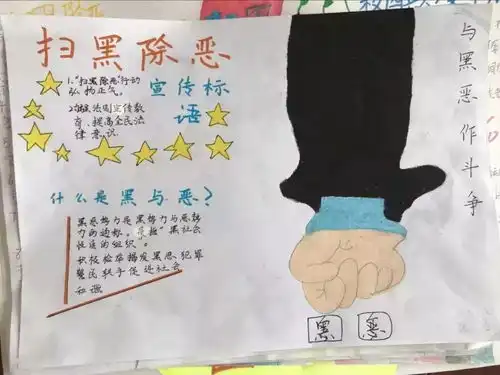 扫黑除恶
宣传标
语
1."扫黑除恶"行动
弘扬正气。
法制宣传教
育、提高全民法
律意识
什么是黑与恶?
黑恶势力是黑势力与恶势
力的
"黑社会
性质的组织"。
积极检举揭发黑恶犯罪
警民联手促进社会
和谐
与黑恶作斗争
黑 恶